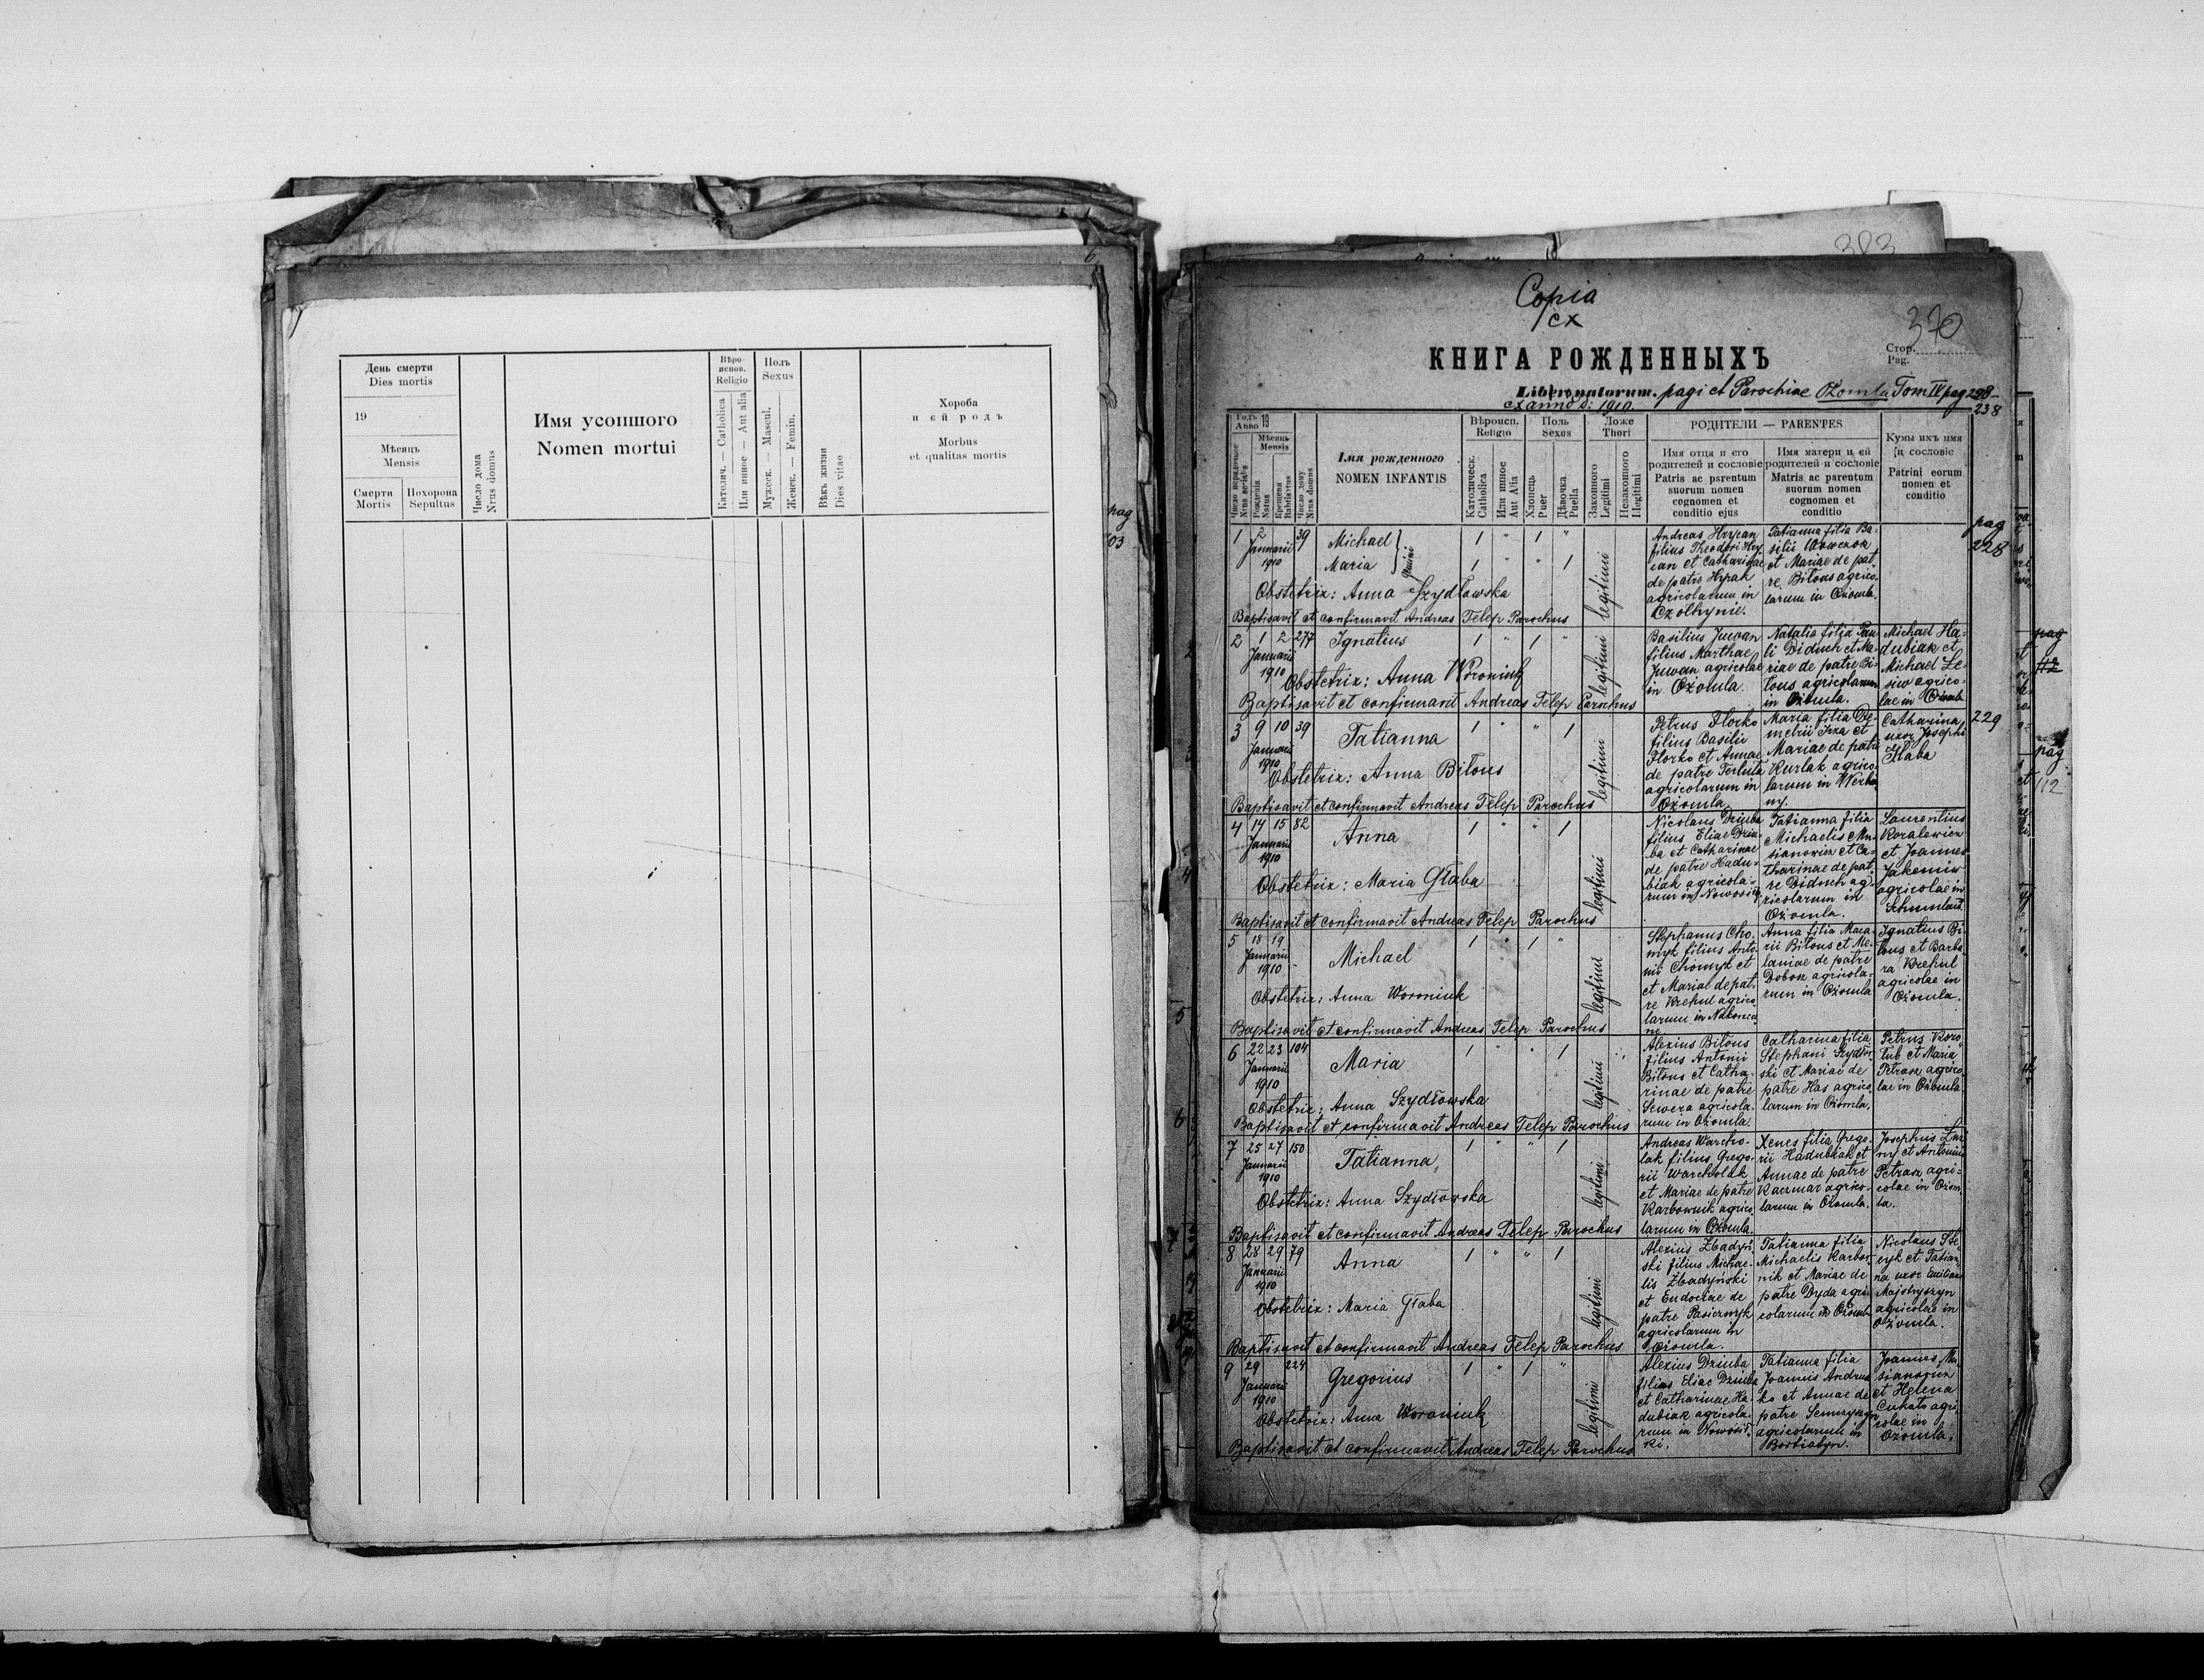 День смерти
Dies mortis
19
Мѣсяць
Mensis
Смерти
Mortis
Похорона
Sepultus
Число дома
Nrus domus
Имя усопшого
Nomen mortui
Вѣро-
испов.
Religio
Католич. — Catholica
Или инное — Aut alia
Полъ
Sexus
Мужеск. — Mascul.
Женск. — Femin.
Вѣкъ жизни
Dies vitae
Хороба
и ей родъ
Morbus
et qualitas mortis
pag
03
383
Copia
cx
370
Стор.
Pag.
КНИГА РОЖДЕННЫХЪ
Liber natorum. pagi et Parochiae Ożomla Tom IV pag 228-
238
ex anno D: 1910.
Годъ 19
Anno
Мѣсяць
Mensis
Число порядочное
Nrus serialis
Рожденія
Natus
Крещенія
Baptisatus
Число дому
Nrus domus
Імя рожденного
NOMEN INFANTIS
Вѣроисп.
Religio
Католическ.
Catholica
Или инное
Aut Alia
Полъ
Sexus
Хлопець
Puer
Дѣвочка
Puella
Ложе
Thori
Законного
Legitimi
Незаконного
Illegitimi
РОДИТЕЛИ — PARENTES
Имя отца и его
родителей и сословіе
Patris ac parentum
suorum nomen
cognomen et
conditio ejus
Имя матери и ей
родителей и сословіе
Matris ac parentum
suorum nomen
cognomen et
conditio
Кумы ихъ имя
и сословіе
Patrini eorum
nomen et
conditio
pag
228
1 2 39
Januarii
1910
Michael
Maria
gemini
1 " 1 "
1 " " 1
legitimi
Obstetrix: Anna Szydłowska
Baptisavit et confirmavit Andreas Telep Parochus
Andreas Hrycan
filius Theodori Hry
can et Catharinae
de patre Hrpak
agricolarum in
Czolhynie.
Tatianna filia Ba-
silii Wowczok
et Mariae de pat
re Bitous agrico
larum in Ożomla.
2 1 2 277
Januarii
1910
Ignatius
1 " 1 "
legitimi
Obstetrix: Anna Woroniuk
Baptisavit et confirmavit Andreas Telep Parochus
Basilius Juwan
filius Marthae
Juwan agricolae
in Ożomla.
Natalia filia Pau
li Diduch et Ma-
riae de patre Bi-
tous agricolarum
in Ożomla.
Michael Ha-
dubiak et
Michael Le-
siw agrico-
lae in Ożomla
3 9 10 39
Januarii
1910
Tatianna
1 " " 1
legitimi
Obstetrix: Anna Bitous
Baptisavit et confirmavit Andreas Telep Parochus
Petrus Florko
filius Basilii
Florko et Annae
de patre Terluta
agricolarum in
Ożomla
Maria filia De-
metrii Irza et
Mariae de patre
Kurlak agrico
larum in Werbia
ny.
Catharina
uxor Josephi
Hłaba
229
4 14 15 82
Januarii
1910
Anna
1 " " 1
legitimi
Obstetrix: Maria Głaba
Baptisavit et confirmavit Andreas Telep Parochus
Nicolaus Dziuba
filius Eliae Dziu-
ba et Catharinae
de patre Hadu-
biak agricola-
rum in Nowosiłki
Tatianna filia
Michaelis Mu-
sianowicz et Ca-
tharinae de pat
re Diduch ag-
ricolarum in
Ożomla.
Laurentius
Koralewicz
et Joannes
Jakemiw
agricolae in
5 18 19
Januarii
1910
Michael
1 " 1 "
legitimi
Obstetrix: Anna Woroniuk
Baptisavit et confirmavit Andreas Telep Parochus
Stephanus Cho-
myk filius Anto-
nii Chomyk et
et Mariae de pat-
re Krehul agrico
larum in Nakonecz
ne
Anna filia Maca-
rii Bitous et Me-
laniae de patre
Dobosz agricola-
rum in Ożomla
Ignatius Bi-
tous et Barba
ra Krehul
agricolae in
Ożomla.
6 22 23 104
Januarii
1910
Maria
1 " " 1
legitimi
Obstetrix: Anna Szydłowska
Baptisavit et confirmavit Andreas Telep Parochus
Alexius Bitous
filius Antonii
Bitous et Catha-
rinae de patre
Siwera agricola-
rum in Ożomla.
Catharina filia
Stephani Szydłow
ski et Mariae de
patre Has agrico
larum in Ożomla.
Petrus Koro
lub et Maria
Petrasz agrico
lae in Ożomla
7 25 27 150
Januarii
1910
Tatianna
1 " " 1
legitimi
Obstetrix: Anna Szydłowska
Baptisavit et confirmavit Andreas Telep Parochus
Andreas Warcho-
lak filius Grego-
rii Warcholak
et Mariae de patre
Karbownik agrico
larum in Ożomla
Xenes filia Grego-
rii Hadubiak et
Annae de patre
Kaczmar agrico-
larum in Ożomla.
Josephus Łuz
ny et Antonina
Petrasz agri-
colae in Ożom
la.
8 28 29 79
Januarii
1910
Anna
1 " " 1
legitimi
Obstetrix: Maria Głaba
Baptisavit et confirmavit Andreas Telep Parochus
Alexius Zbadyń
ski filius Michae-
lis Zbadyński
et Eudociae de
patre Pasicznyk
agricolarum in
Ożomla.
Tatianna filia
Michaelis Karbow
nik et Mariae de
patre Dyda agri-
colarum in Ożomla
Nicolaus Ste
cyk et Tatian
na uxor Emiliani
Majstryszyn
agricolae in
Ożomla.
9 29 224
Januarii
1910
Gregorius
1 " 1 "
legitimi
Obstetrix: Anna Woroniuk
Baptisavit et confirmavit Andreas Telep Parochus
Alexius Dziuba
filius Eliae Dziuba
et Catharinae Ha-
dubiak agricola-
rum in Nowosił
ki.
Tatianna filia
Joannis Andrus
ko et Annae de
patre
agricolarum in
Bortiatyn.
Joannes Mu
sianowicz
et Helena
Cukato agri
colae in
Ożomla.
pag
112
pag
112